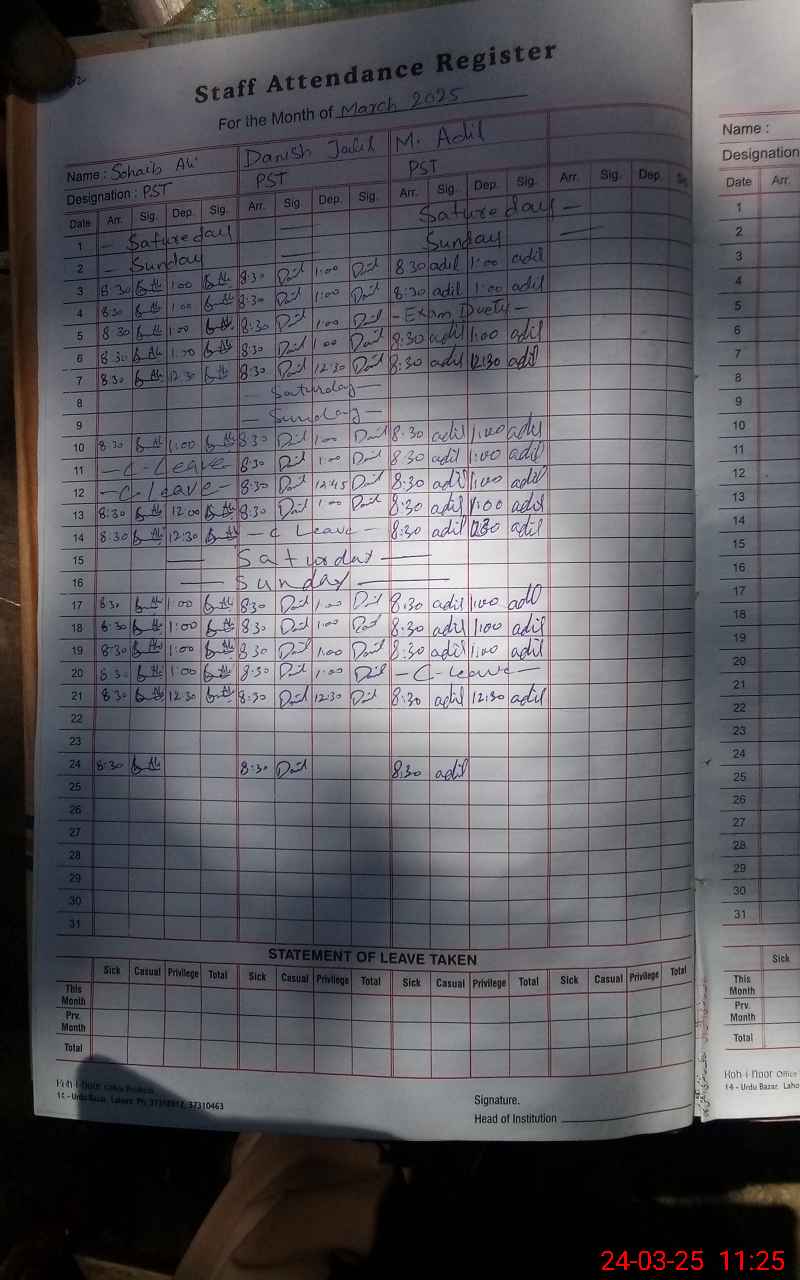 Staff Attendance Register
For the Month of March 2025
Name : Sohaib Ali Danish Jalil M. Adil
Designation : PST PST PST
Date Arr. Sig. Dep. Sig. Arr. Sig. Dep. Sig. Arr. Sig. Dep. Sig. Arr. Sig. Dep.
1 - Satureday — Satureday -
2 - Sunday — Sunday —
3 8:30 1:00 8:30 1:00 8:30 adil 1:00 adil
4 8:30 1:00 8:30 1:00 8:30 adil 1:00 adil
5 8:30 1:00 8:30 1:00 - Exam Duety -
6 8:30 1:00 8:30 1:00 8:30 adil 1:00 adil
7 8:30 12:30 8:30 12:30 8:30 adil 12:30 adil
8 - Saturday -
9 - Sunday -
10 8:30 1:00 8:30 1:00 8:30 adil 1:00 adil
11 - C - Leave - 8:30 1:00 8:30 adil 1:00 adil
12 - C - Leave - 8:30 12:45 8:30 adil 1:00 adil
13 8:30 12:00 8:30 1:00 8:30 adil 1:00 adil
14 8:30 12:30 - C Leave - 8:30 adil 12:30 adil
15 — Saturday —
16 — Sunday —
17 8:30 1:00 8:30 1:00 8:30 adil 1:00 adil
18 8:30 1:00 8:30 1:00 8:30 adil 1:00 adil
19 8:30 1:00 8:30 1:00 8:30 adil 1:00 adil
20 8:30 1:00 8:30 1:00 - C - Leave -
21 8:30 12:30 8:30 12:30 8:30 adil 12:30 adil
22
23
24 8:30 8:30 8:30 adil
25
26
27
28
29
30
31
STATEMENT OF LEAVE TAKEN
Sick Casual Privilege Total Sick Casual Privilege Total Sick Casual Privilege Total Sick Casual Privilege Total
This Month
Prv. Month
Total
Koh-i-noor Office Products
14 - Urdu Bazar, Lahore. Ph: 37310463
Signature.
Head of Institution
Name :
Designation
Date Arr.
1
2
3
4
5
6
7
8
9
10
11
12
13
14
15
16
17
18
19
20
21
22
23
24
25
26
27
28
29
30
31
Sick
This Month
Prv. Month
Total
Koh-i-noor Office
14 - Urdu Bazar, Laho
24-03-25 11:25